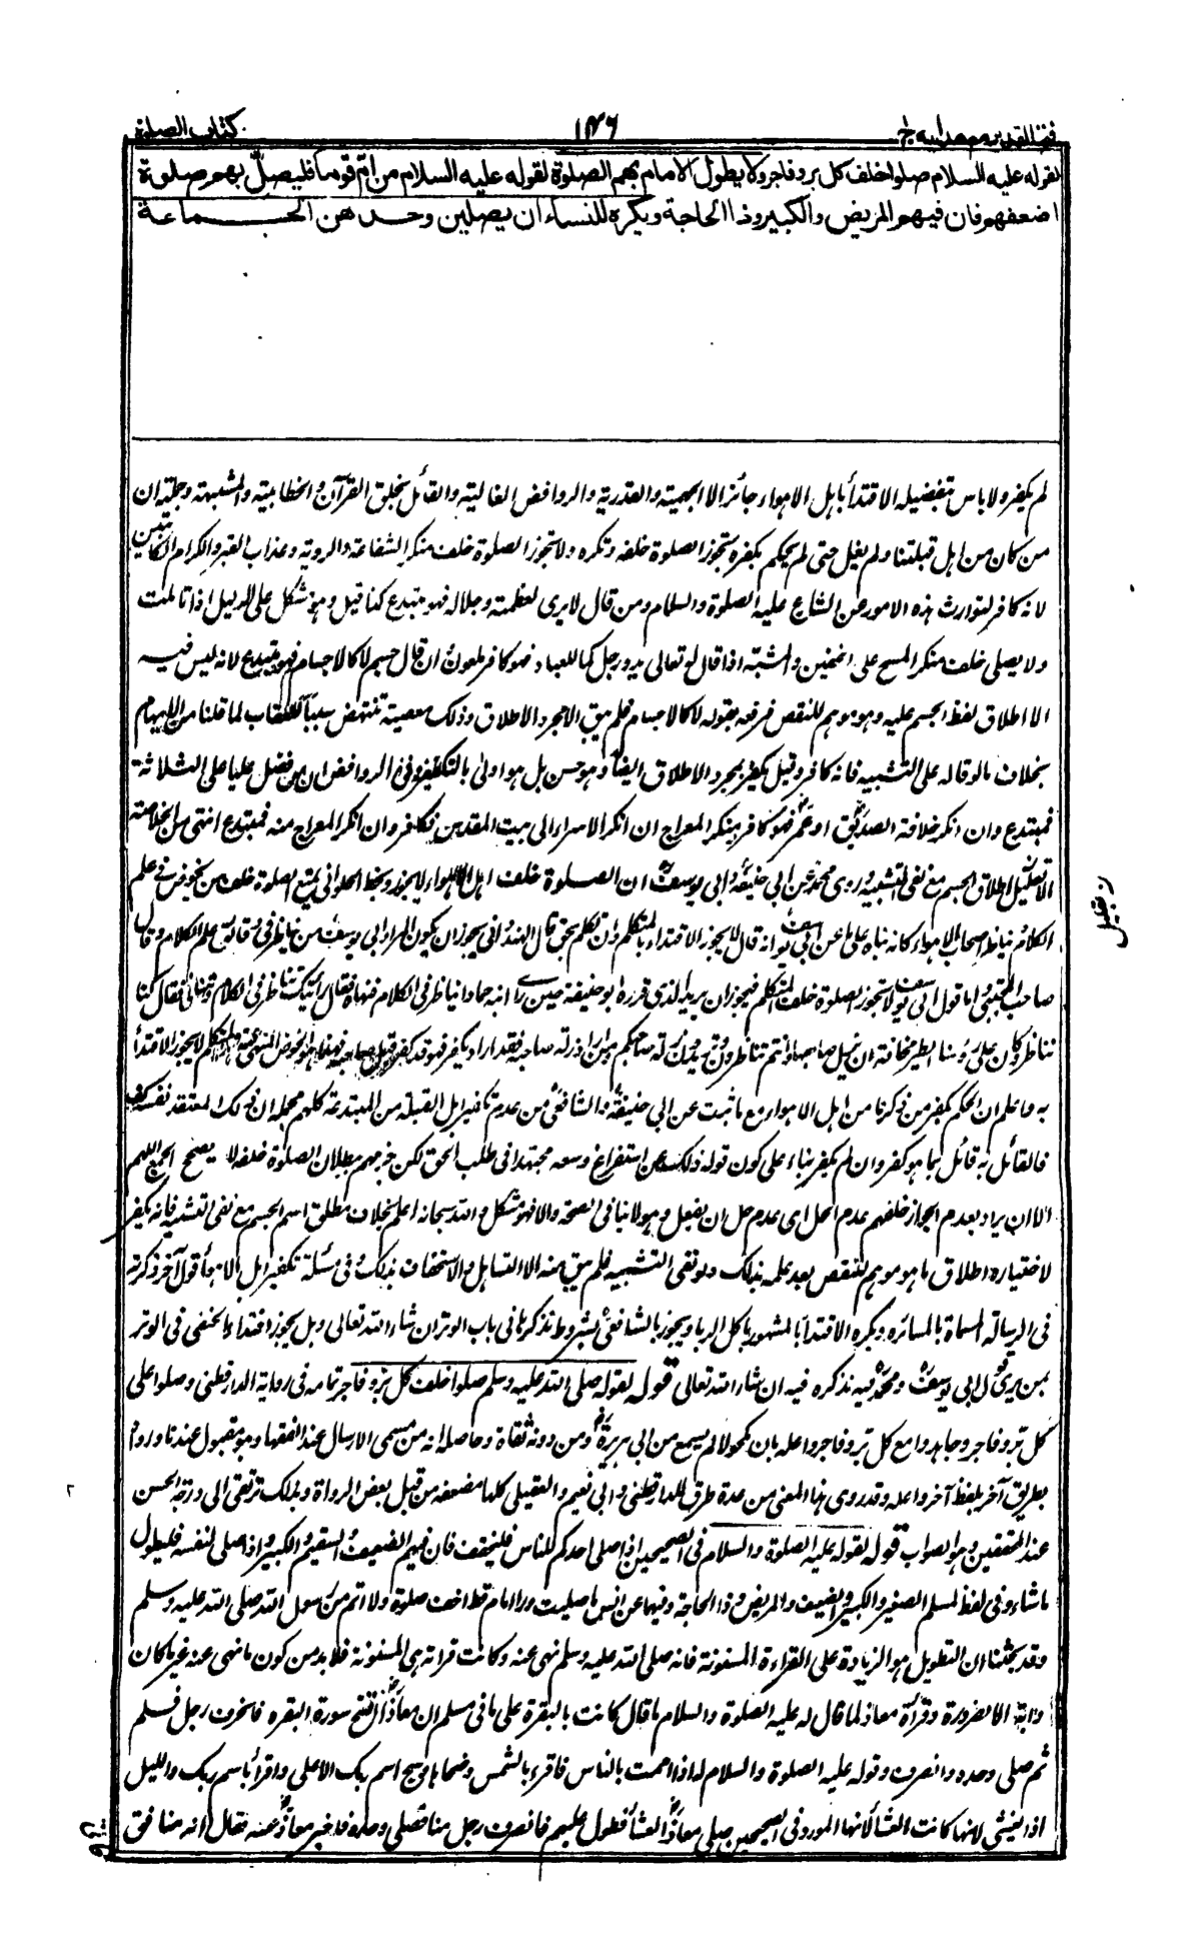 فتح القدير مع هدايه ج ١
١٤٦
كتاب الصلوة
لقوله عليه السلام صلوا خلف كل بر و فاجر ولا يطول الامام بهم الصلوة لقوله عليه السلام من امّ قوما فليصلّ بهم صلوة
اضعفهم فان فيهم المريض والكبير وذا الحاجة ويكره للنساء ان يصلين وحدهن الجماعة
لم يكفر ولا باس بتفضيله الاقتدأ باهل الاهواء جائز الا الجهمية والقدرية والروافض الغالية والقائل بخلق القرآن والخطابية والمشبهة وجملته ان
من كان من اهل قبلتنا ولم يغل حتى لم يحكم بكفره تجوز الصلوة خلفه وتكره ولا تجوز الصلوة خلف منكر الشفاعة والروية وعذاب القبر والكرام الكاتبين
لانه كافر لتوارث هذه الامور عن الشارع عليه الصلوة والسلام ومن قال لا يرى لعظمته وجلاله فهو مبتدع كذا قيل وهو مشكل على الدليل اذا تاملت
ولا يصلى خلف منكر المسح على الخفين والمشبه اذا قال له تعالى يد ورجل كما للعباد فهو كافر ملعون ان قال جسم لا كالاجسام فهو مبتدع لانه ليس فيه
الا اطلاق لفظ الجسم عليه وهو موهم للنقص فرفعه بقوله لا كالاجسام فلم يبق الا مجرد الاطلاق وذلك معصية تنتهض سببا للعقاب لما قلنا من الايهام
بخلاف ما لو قاله على التشبيه فانه كافر وقيل يكفر بمجرد الاطلاق ايضا وهو حسن بل هو اولى بالتكفير وفى الروافض ان من فضل عليا على الثلاثة
فمبتدع وان انكر خلافة الصديق او عمر فهو كافر ومنكر المعراج ان انكر الاسراء الى بيت المقدس فكافر وان انكر المعراج منه فمبتدع انتهى من الخلاصة
الا تعليل اطلاق الجسم مع نفى التشبيه وروى محمد عن ابى حنيفة وابى يوسف ان الصلوة خلف اهل الاهواء لا تجوز وبخط الحلوانى تمنع الصلوة خلف من يخوض فى علم
الكلام ويناظر اصحاب الاهواء كانه بناه على ما عن ابى يوسف انه قال لا يجوز الاقتداء بالمتكلم وان تكلم بحق قال الهندوانى يجوز ان يكون المراد ابى يوسف من يناظر فى دقائق علم الكلام وقال
صاحب المجتبى واما قول ابى يوسف لا تجوز الصلوة خلف المتكلم فيجوز ان يريد الذى قرره ابو حنيفة حين راى ابنه حمادا يناظر فى الكلام فنهاه فقال رايتك تناظر فى الكلام وتنهانى فقال كنا
نناظر وكان على رؤسنا الطير مخافة ان يزل صاحبنا وانتم تناظرون وتريدون زلة صاحبكم ومن اراد زلة صاحبه فقد اراد ان يكفر فهو قد كفر قبل صاحبه فهذا هو الخوض المنهى عنه وهذا المتكلم لا يجوز الاقتدأ
به واعلم ان الحكم بكفر من ذكرنا من اهل الاهواء مع ما ثبت عن ابى حنيفة والشافعى من عدم تكفير اهل القبلة من المبتدعة كلهم محمله ان ذلك المعتقد نفسه كفر
فالقائل به قائل بما هو كفر وان لم يكفر بناء على كون قوله ذلك عن استفراغ وسعه مجتهدا فى طلب الحق لكن جزمهم ببطلان الصلوة خلفه لا يصحح الجمع اللهم
الا ان يراد بعدم الجواز خلفهم عدم الحل اى عدم حل ان يفعل وهو لا ينافى الصحة والا فهو مشكل والله سبحانه اعلم بخلاف مطلق اسم الجسم مع نفى التشبيه فانه يكفر
لاختياره اطلاق ما هو موهم للنقص بعد علمه بذلك ولو نفى التشبيه فلم يبق منه الا التساهل والاستخفاف بذلك وفى مسئلة تكفير اهل الاهواء قول آخر ذكرته
فى الرسالة المسماة بالمسائره ويكره الاقتدأ بالمشهور باكل الربا ويجوز بالشافعى بشروط نذكرها فى باب الوتر ان شاء الله تعالى وهل يجوز اقتداء الحنفى فى الوتر
بمن يرى قول ابى يوسف ومحمد فيه نذكره فيه ان شاء الله تعالى قوله لقوله صلى الله عليه وسلم صلوا خلف كل بر وفاجر تمامه فى رواية الدارقطنى وصلوا على
كل بر وفاجر وجاهدوا مع كل بر وفاجر واعله بان مكحولا لم يسمع من ابى هريرة ومن دونه ثقاة وحاصله انه من مسمى الارسال عند الفقهاء وهو مقبول عندنا وروى
بطريق آخر بلفظ آخر واعله وقد روى هذا المعنى من عدة طرق للدارقطنى وابى نعيم والعقيلى كلها مضعفه من قبل بعض الرواة وبذلك ترتقى الى درجة الحسن
عند المحققين وهو الصواب قوله لقوله عليه الصلوة والسلام فى الصحيحين اذا صلى احدكم للناس فليخفف فان فيهم الضعيف والسقيم والكبير واذا صلى لنفسه فليطول
ما شاء وفى لفظ لمسلم الصغير والكبير والضعيف والمريض وذا الحاجة وفيهما عن انس ما صليت وراء امام قط اخف صلوة ولا اتم من رسول الله صلى الله عليه وسلم
وقد بحثنا ان التطويل هو الزيادة على القراءة المسنونة فانه صلى الله عليه وسلم نهى عنه وكانت قراته هى المسنونة فلا بد من كون ما نهى عنه غير ما كان
دابه الا لضرورة وقرأة معاذ لما قال له عليه الصلوة والسلام ما قال كانت بالبقرة على ما فى مسلم ان معاذا افتتح سورة البقره فانحرف رجل فسلم
ثم صلى وحده وانصرف وقوله عليه الصلوة والسلام له اذا اممت بالناس فاقرء بالشمس وضحاها وسبح اسم ربك الاعلى واقرأ باسم ربك والليل
اذا يغشى لانها كانت العشأ لانها المورد فى الصحيحين صلى معاذ العشأ فطول عليهم فانصرف رجل منا فصلى وحده فاخبر معاذ عنه فقال انه منافق